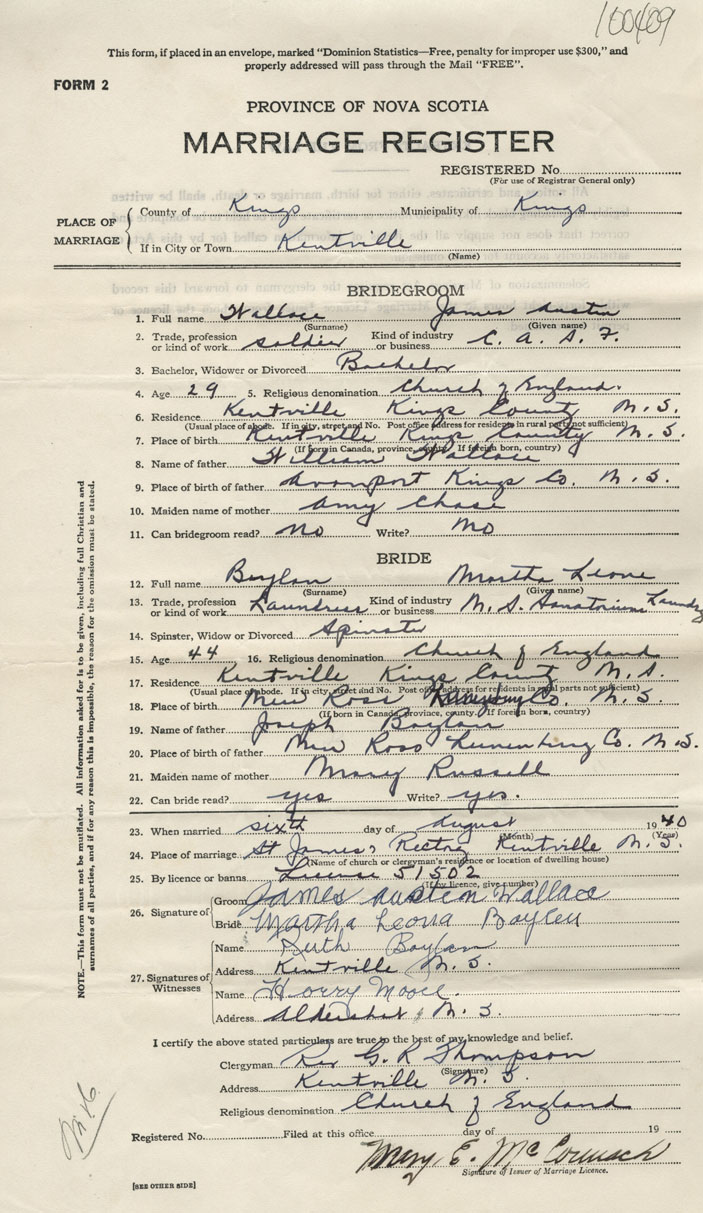 100409
This form, if placed in an envelope, marked "Dominion Statistics—Free, penalty for improper use $300," and
properly addressed will pass through the Mail "FREE".
FORM 2
PROVINCE OF NOVA SCOTIA
MARRIAGE REGISTER
REGISTERED No.
(For use of Registrar General only)
PLACE OF MARRIAGE
County of Kings Municipality of Kings
If in City or Town Kentville
(Name)
BRIDEGROOM
1. Full name Wallace James Austin
(Surname) (Given name)
2. Trade, profession or kind of work soldier Kind of industry or business C. A. S. F.
3. Bachelor, Widower or Divorced Bachelor
4. Age 29 5. Religious denomination Church of England.
6. Residence Kentville Kings County N. S.
(Usual place of abode. If in city, street and No. Post office address for residents in rural parts not sufficient)
7. Place of birth Kentville Kings County N. S.
(If born in Canada, province, county. If foreign born, country)
8. Name of father William Wallace
9. Place of birth of father Avonport Kings Co. N. S.
10. Maiden name of mother Amy Chase
11. Can bridegroom read? No Write? No
BRIDE
12. Full name Boylan Martha Leone
(Surname) (Given name)
13. Trade, profession or kind of work Laundress Kind of industry or business N. S. Sanatorium Laundry
14. Spinster, Widow or Divorced Spinster
15. Age 44 16. Religious denomination Church of England
17. Residence Kentville Kings County N. S.
(Usual place of abode. If in city, street and No. Post office address for residents in rural parts not sufficient)
18. Place of birth New Ross Co. N. S.
(If born in Canada, province, county. If foreign born, country)
19. Name of father Joseph Boylan
20. Place of birth of father New Ross Lunenburg Co. N. S.
21. Maiden name of mother Mary Russell
22. Can bride read? yes Write? yes.
23. When married sixth day of August 1940
(Month) (Year)
24. Place of marriage St James' Rectory Kentville N. S.
(Name of church or clergyman's residence or location of dwelling house)
25. By licence or banns License 51502
(If by licence, give number)
26. Signature of
Groom James Austen Wallace
Bride Martha Leona Boylen
27. Signatures of Witnesses
Name Ruth Boylan
Address Kentville N. S.
Name Harry Moore.
Address Aldershot N. S.
I certify the above stated particulars are true to the best of my knowledge and belief.
Clergyman Rev G. R Thompson
(Signature)
Address Kentville N. S.
Religious denomination Church of England
Registered No. Filed at this office day of 19
Mary E. McCormack
Signature of Issuer of Marriage Licence.
[SEE OTHER SIDE]
NOTE.—This form must not be mutilated. All information asked for is to be given, including full Christian and
surnames of all parties, and if for any reason this is impossible, the reason for the omission must be stated.